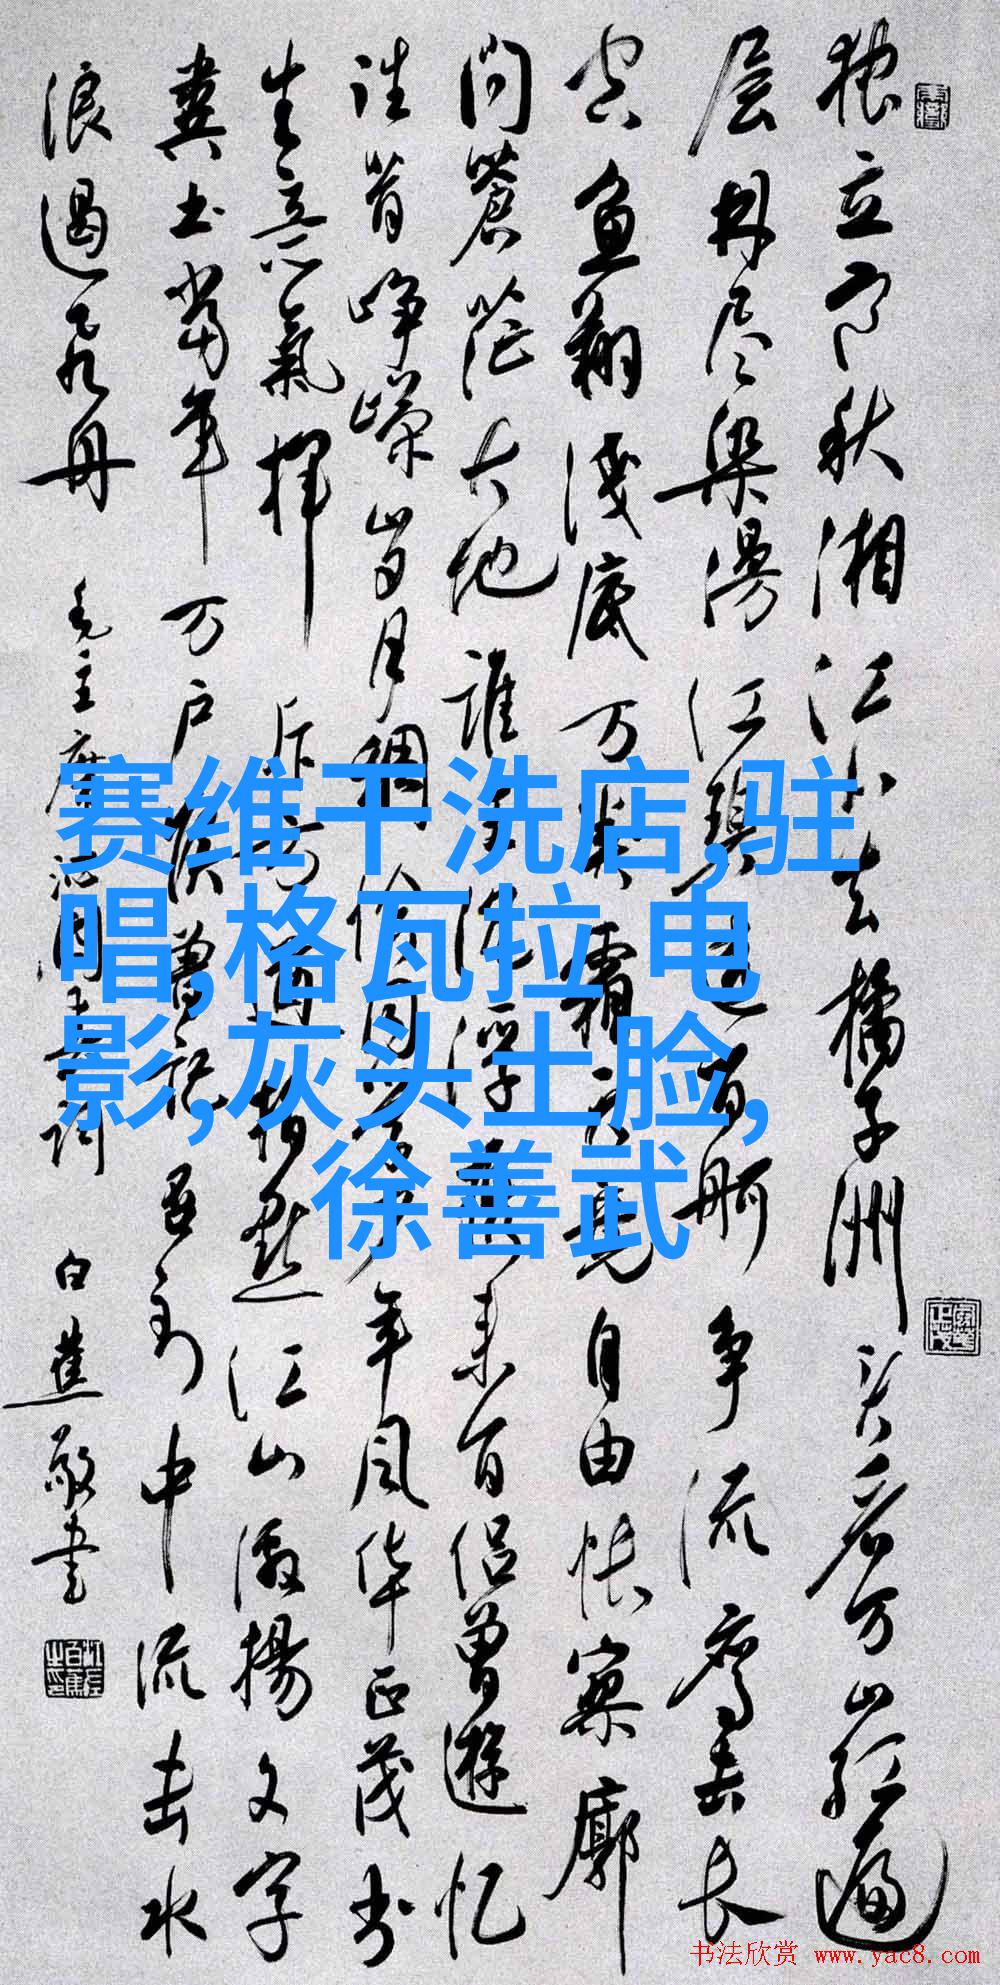 独立寒秋湘江北去橘子洲头看万山红遍
层林尽染漫江碧透百舸争流鹰击长
空鱼翔浅底万类霜天竞自由怅寥廓
問蒼茫大地誰主沉浮携来百侣曾遊忆
往昔峥嵘岁月稠恰同学少年风华正茂书
生意氣挥斥方遒指点江山激揚文字
粪土当年万户侯曾记否到中流击水
浪遏飞舟 毛主席沁园春词 白蕉敬書
赛维干洗店,驻
唱,格瓦拉 电
影,灰头土脸,
徐善武
书法欣赏 www.yac8.com